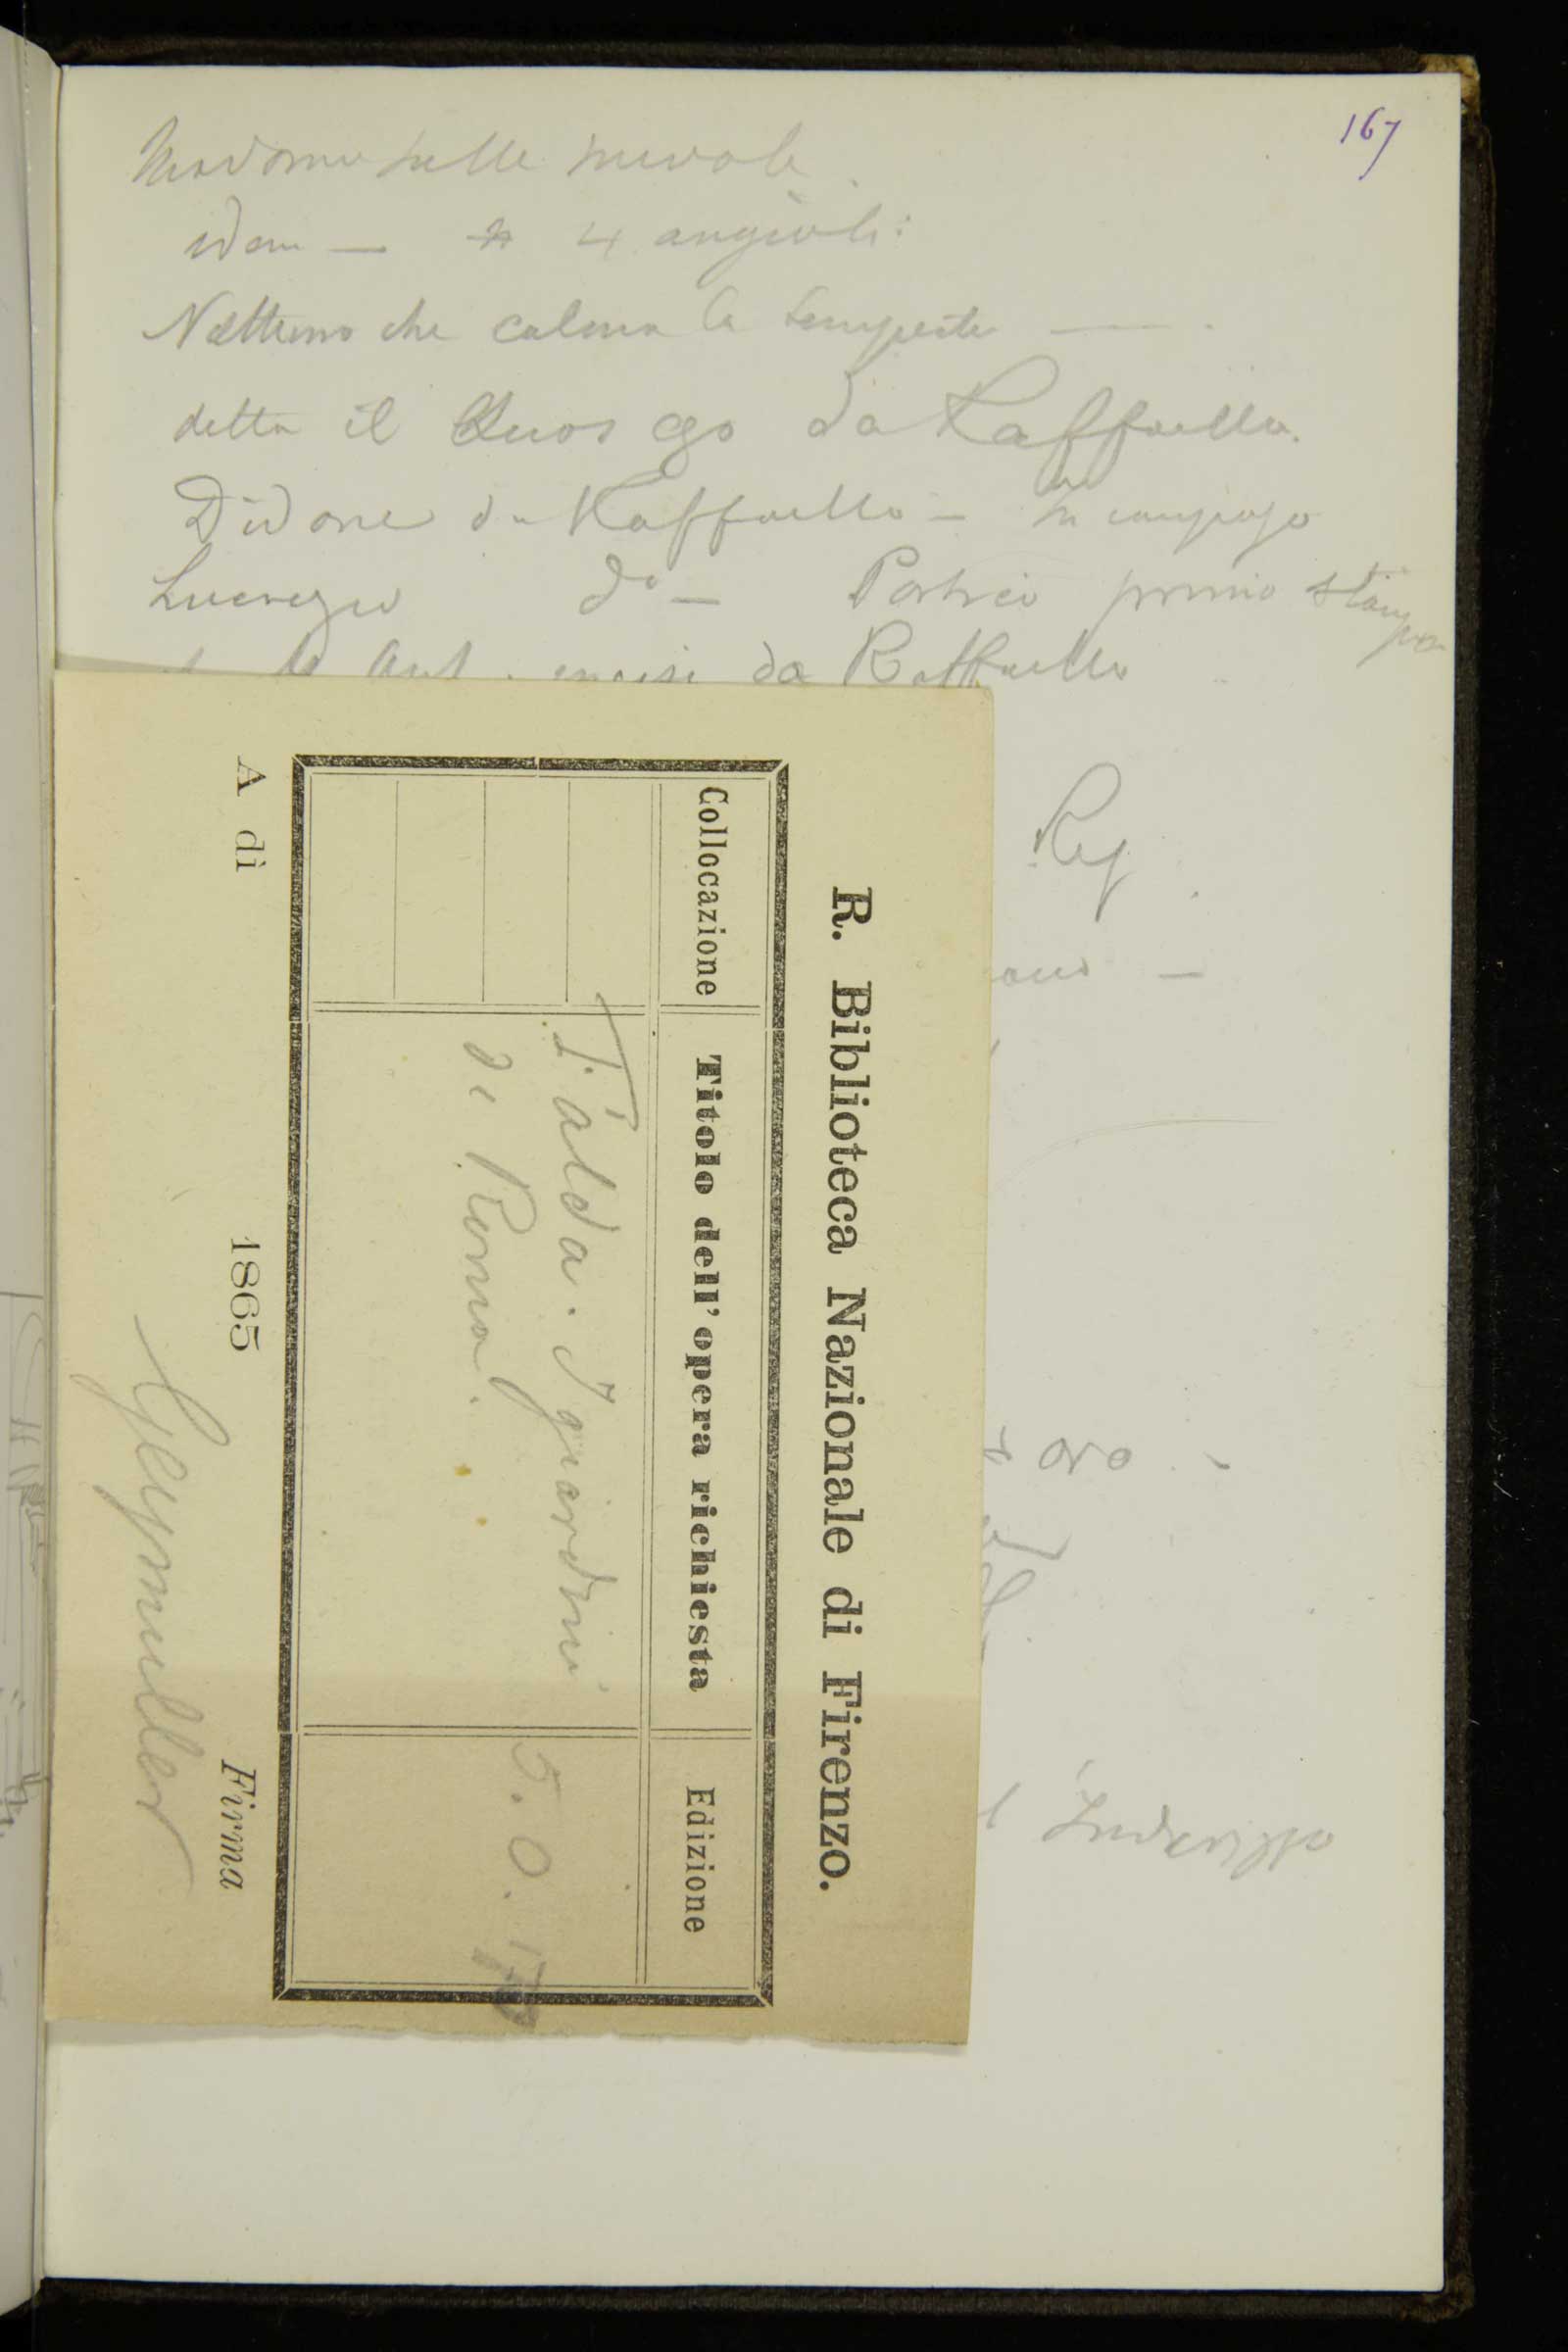 167
Madonna sulle nuvole
idem — 4 angioli:
Nettuno che calma la tempesta —
detta il Quos ego da Raffaello.
Didone da Raffaello —
Lucrezia do — Portrei primo stampa
da Raffaello
Raf
oro
R. Biblioteca Nazionale di Firenzo.
Collocazione
Titolo dell'opera richiesta
Edizione
Falda. I giardini
di Roma.
5. 0.
A dì
1865
Firma
Geymuller